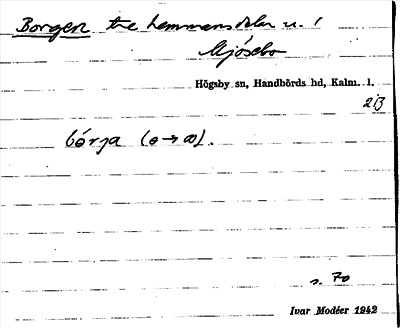 Borgen tre hemmansdelar u. 1
Mjösebo
Högsby sn, Handbörds hd, Kalm. l.
213
bórja (o→ω).
s. 70
Ivar Modéer 1942